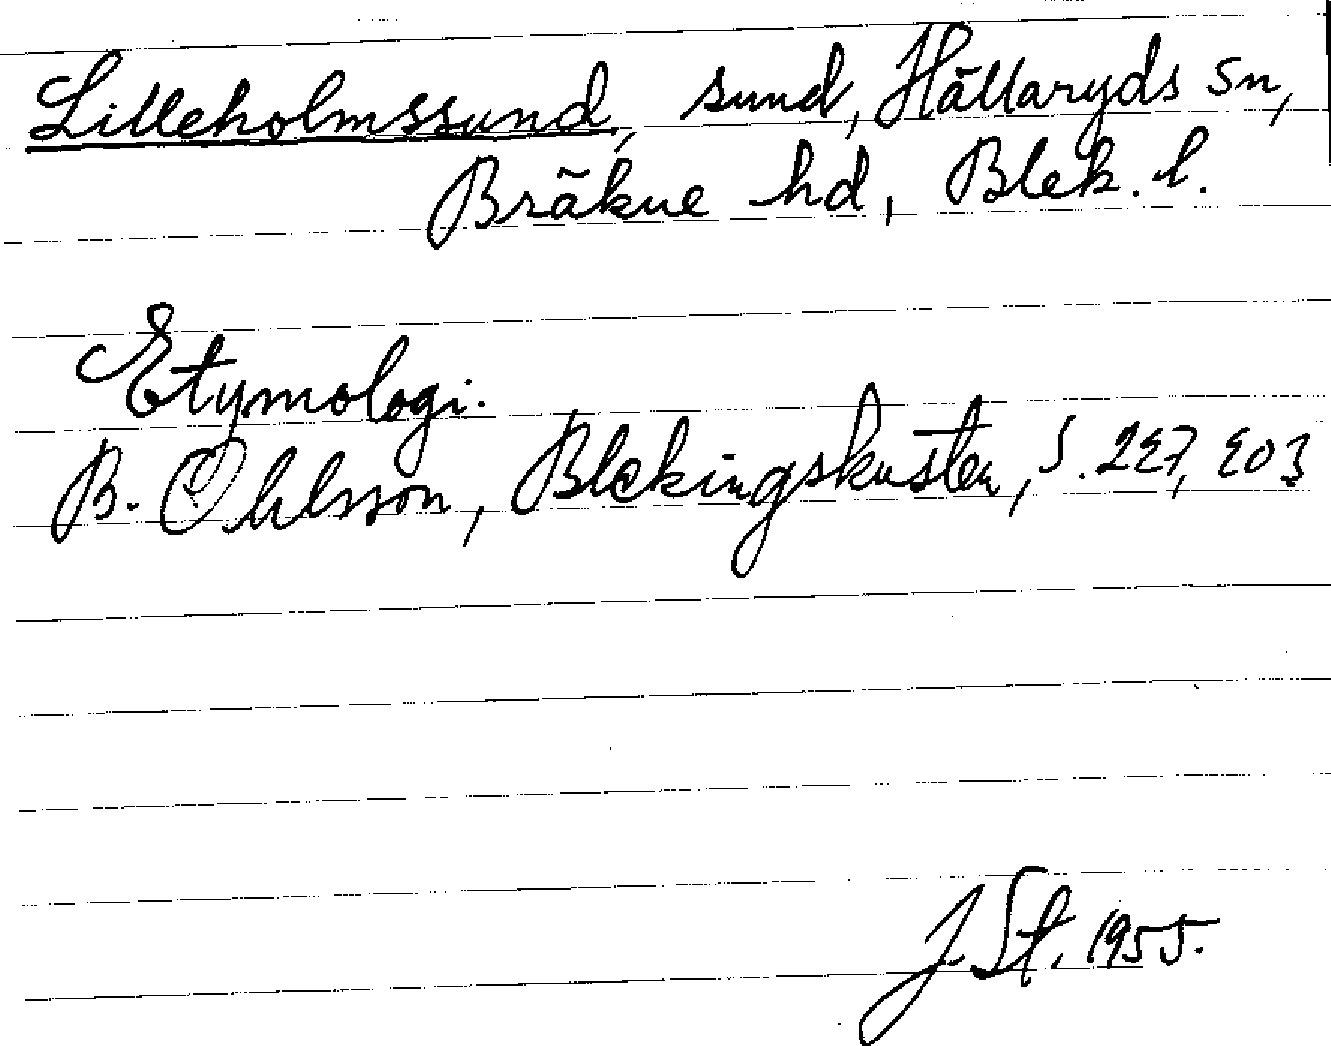 Lilleholmssund, sund, Hällaryds sn,
Bräkne hd, Blek. l.
Etymologi.
B. Ohlsson, Blekingskusten, s. 227, 203
J. St. 1955.